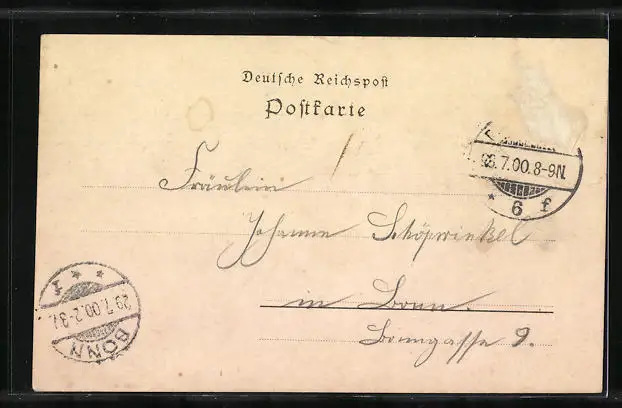 Deutsche Reichspost
Postkarte
.7.00.8-9N.
* 6 f
Fräulein
Johanne Schöpwinkel
in Bonn.
Bonngasse 9.
29.7.00.2-3
BONN